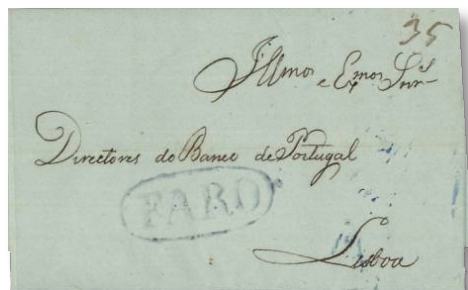 35
Illmos e Exmos Snrs
Directores do Banco de Portugal
FARO
Lisboa